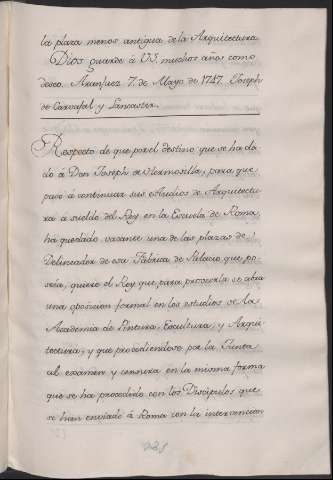 la plaza menos antigua de la Arquitectura
Dios guarde á V.S. muchos años como
deseo. Aranjuez 7. de Mayo de 1747. Joseph
de Carvajal y Lancaster.
Respecto de que por el destino que se ha da
do á Don Joseph de Hermosilla, para que
pase á continuar sus estudios de Arquitectu
ra a sueldo del Rey en la Escuela de Roma,
ha quedado vacante una de las plazas de
Delineador de esa Fabrica de Palacio que po-
seia, quiere el Rey que para proveerla se abra
una oposicion formal en los estudios de la
Academia de Pintura, Escultura, y Arqui-
tectura, y que procediendose por la Junta
al examen y censura en la misma forma
que se ha procedido con los Discipulos que
se han enviado á Roma con la intervencion